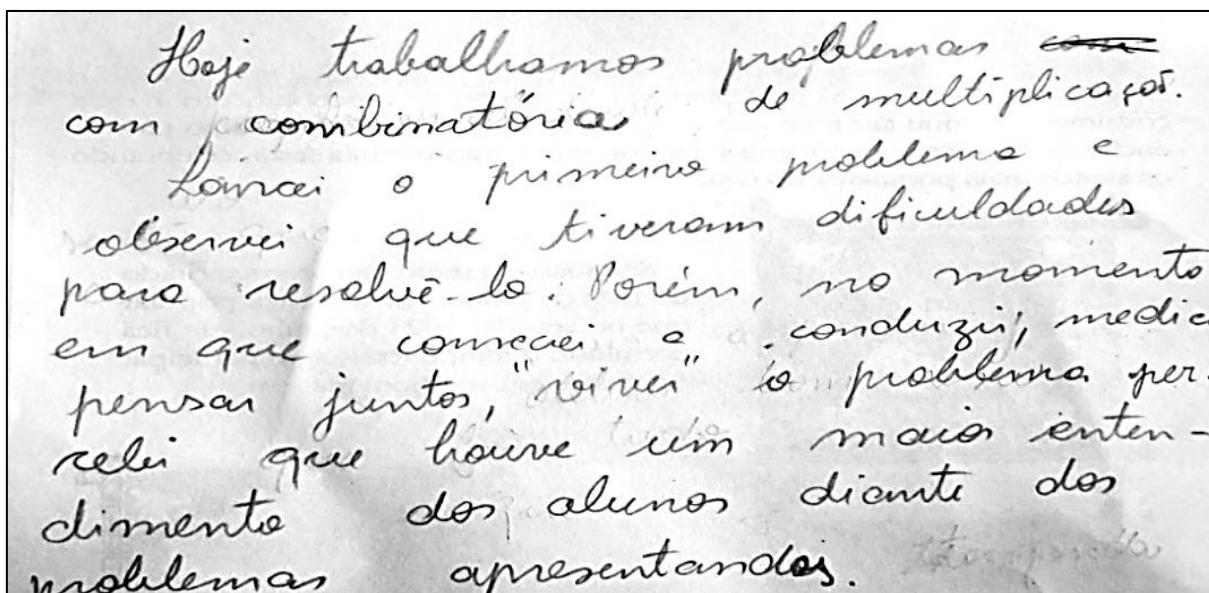 Hoje trabalhamos problemas com
com combinatória de multiplicação.
Lancei o primeiro problema e
observei que tiveram dificuldades
para resolvê-lo. Porém, no momento
em que comecei a conduzir, media
pensar juntos, "viver" o problema per-
cebi que houve um maior enten-
dimento dos alunos diante dos
problemas apresentandos.